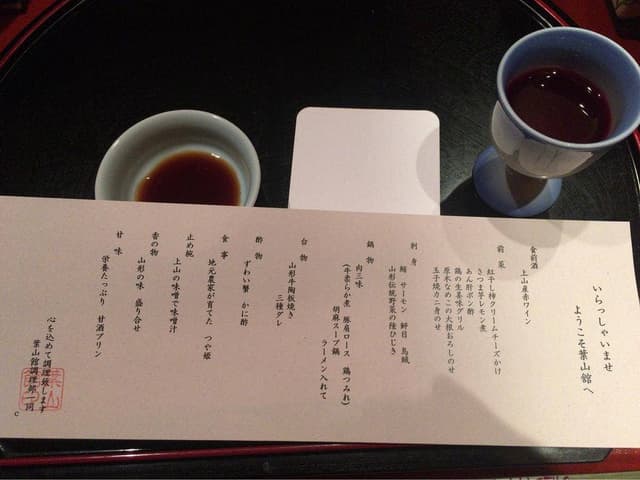 いらっしゃいませ
ようこそ葉山館へ
食前酒
上山産赤ワイン
前菜
紅干し柿クリームチーズかけ
さつま芋レモン煮
あん肝ポン酢
鶏の生姜味グリル
原木なめこの大根おろしのせ
玉子焼カニ身のせ
刺身
鯛 サーモン 鮃目 烏賊
山形伝統野菜の陸ひじき
鍋物
肉三味
(牛柔らか煮 豚肩ロース 鶏つみれ)
胡麻スープ鍋
ラーメン入れて
台物
山形牛陶板焼き
三種ダレ
酢物
ずわい蟹 かに酢
食事
地元農家が育てた つや姫
止め椀
上山の味噌で味噌汁
香の物
山形の味 盛り合せ
甘味
栄養たっぷり 甘酒プリン
心を込めて調理致します
葉山館調理部一同
c